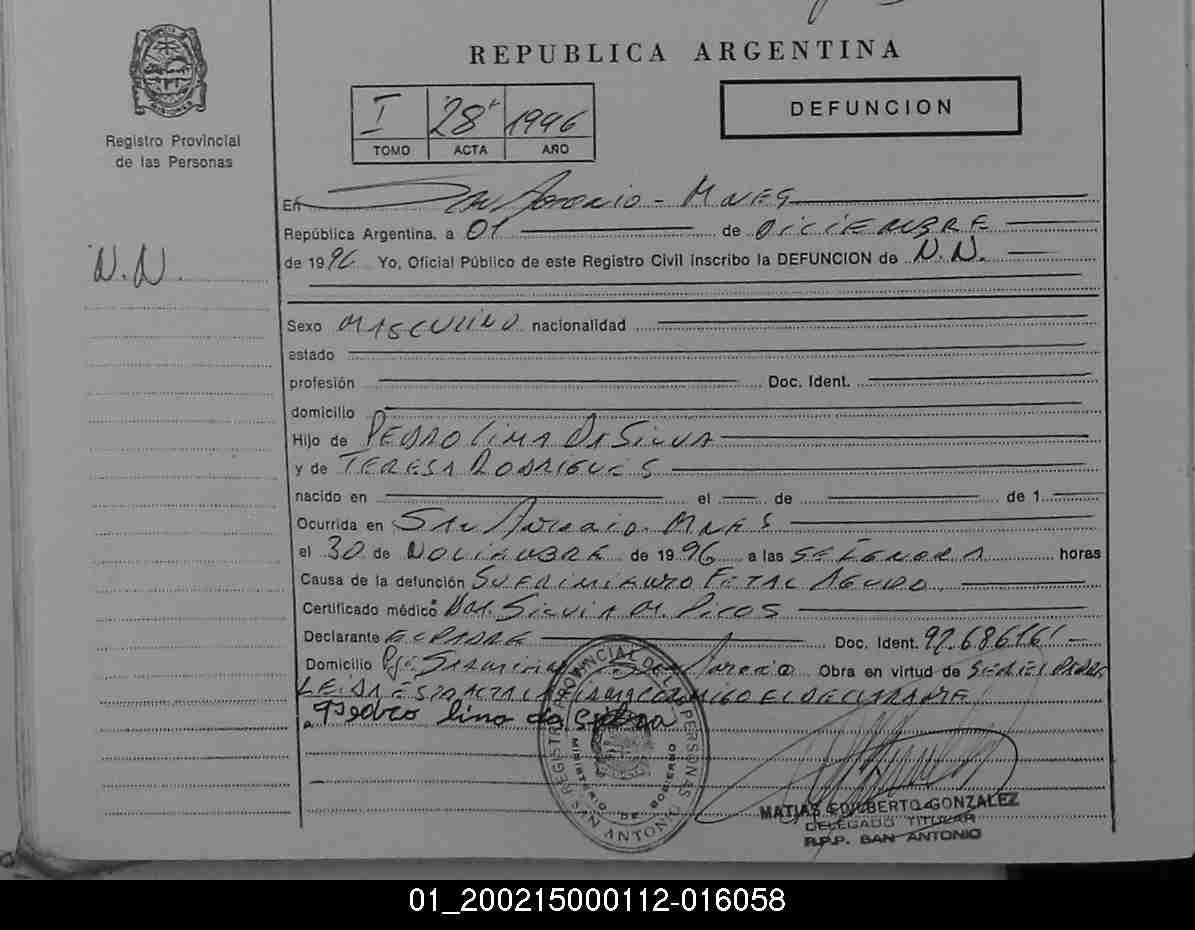 REPUBLICA ARGENTINA
Registro Provincial
de las Personas
I 28 1996
TOMO ACTA AÑO
DEFUNCION
N.N.
En San Antonio - Mnes
República Argentina, a 01 de DICIEMBRE
de 1996 Yo, Oficial Público de este Registro Civil inscribo la DEFUNCION de N.N.
Sexo MASCULINO nacionalidad
estado
profesión Doc. Ident.
domicilio
Hijo de PEDRO LIMA DA SILVA
y de TERESA RODRIGUES
nacido en el de de 1
Ocurrida en San Antonio. Mnes
el 30 de NOVIEMBRE de 1996 a las horas
Causa de la defunción SUFRIMIENTO FETAL AGUDO
Certificado médico Dra. SILVIA M. PICOS
Declarante EL PADRE Doc. Ident. 92.686161
Domicilio San Antonio Obra en virtud de SER EL PADRE
LEIDA ESTA ACTA LA FIRMA CONMIGO EL DECLARANTE
Pedro lino da Silva
REGISTRO PROVINCIAL DE LAS PERSONAS
MINISTERIO DE GOBIERNO
SAN ANTONIO
MATIAS EDILBERTO GONZALEZ
DELEGADO TITULAR
R.P.P. SAN ANTONIO
01_200215000112-016058